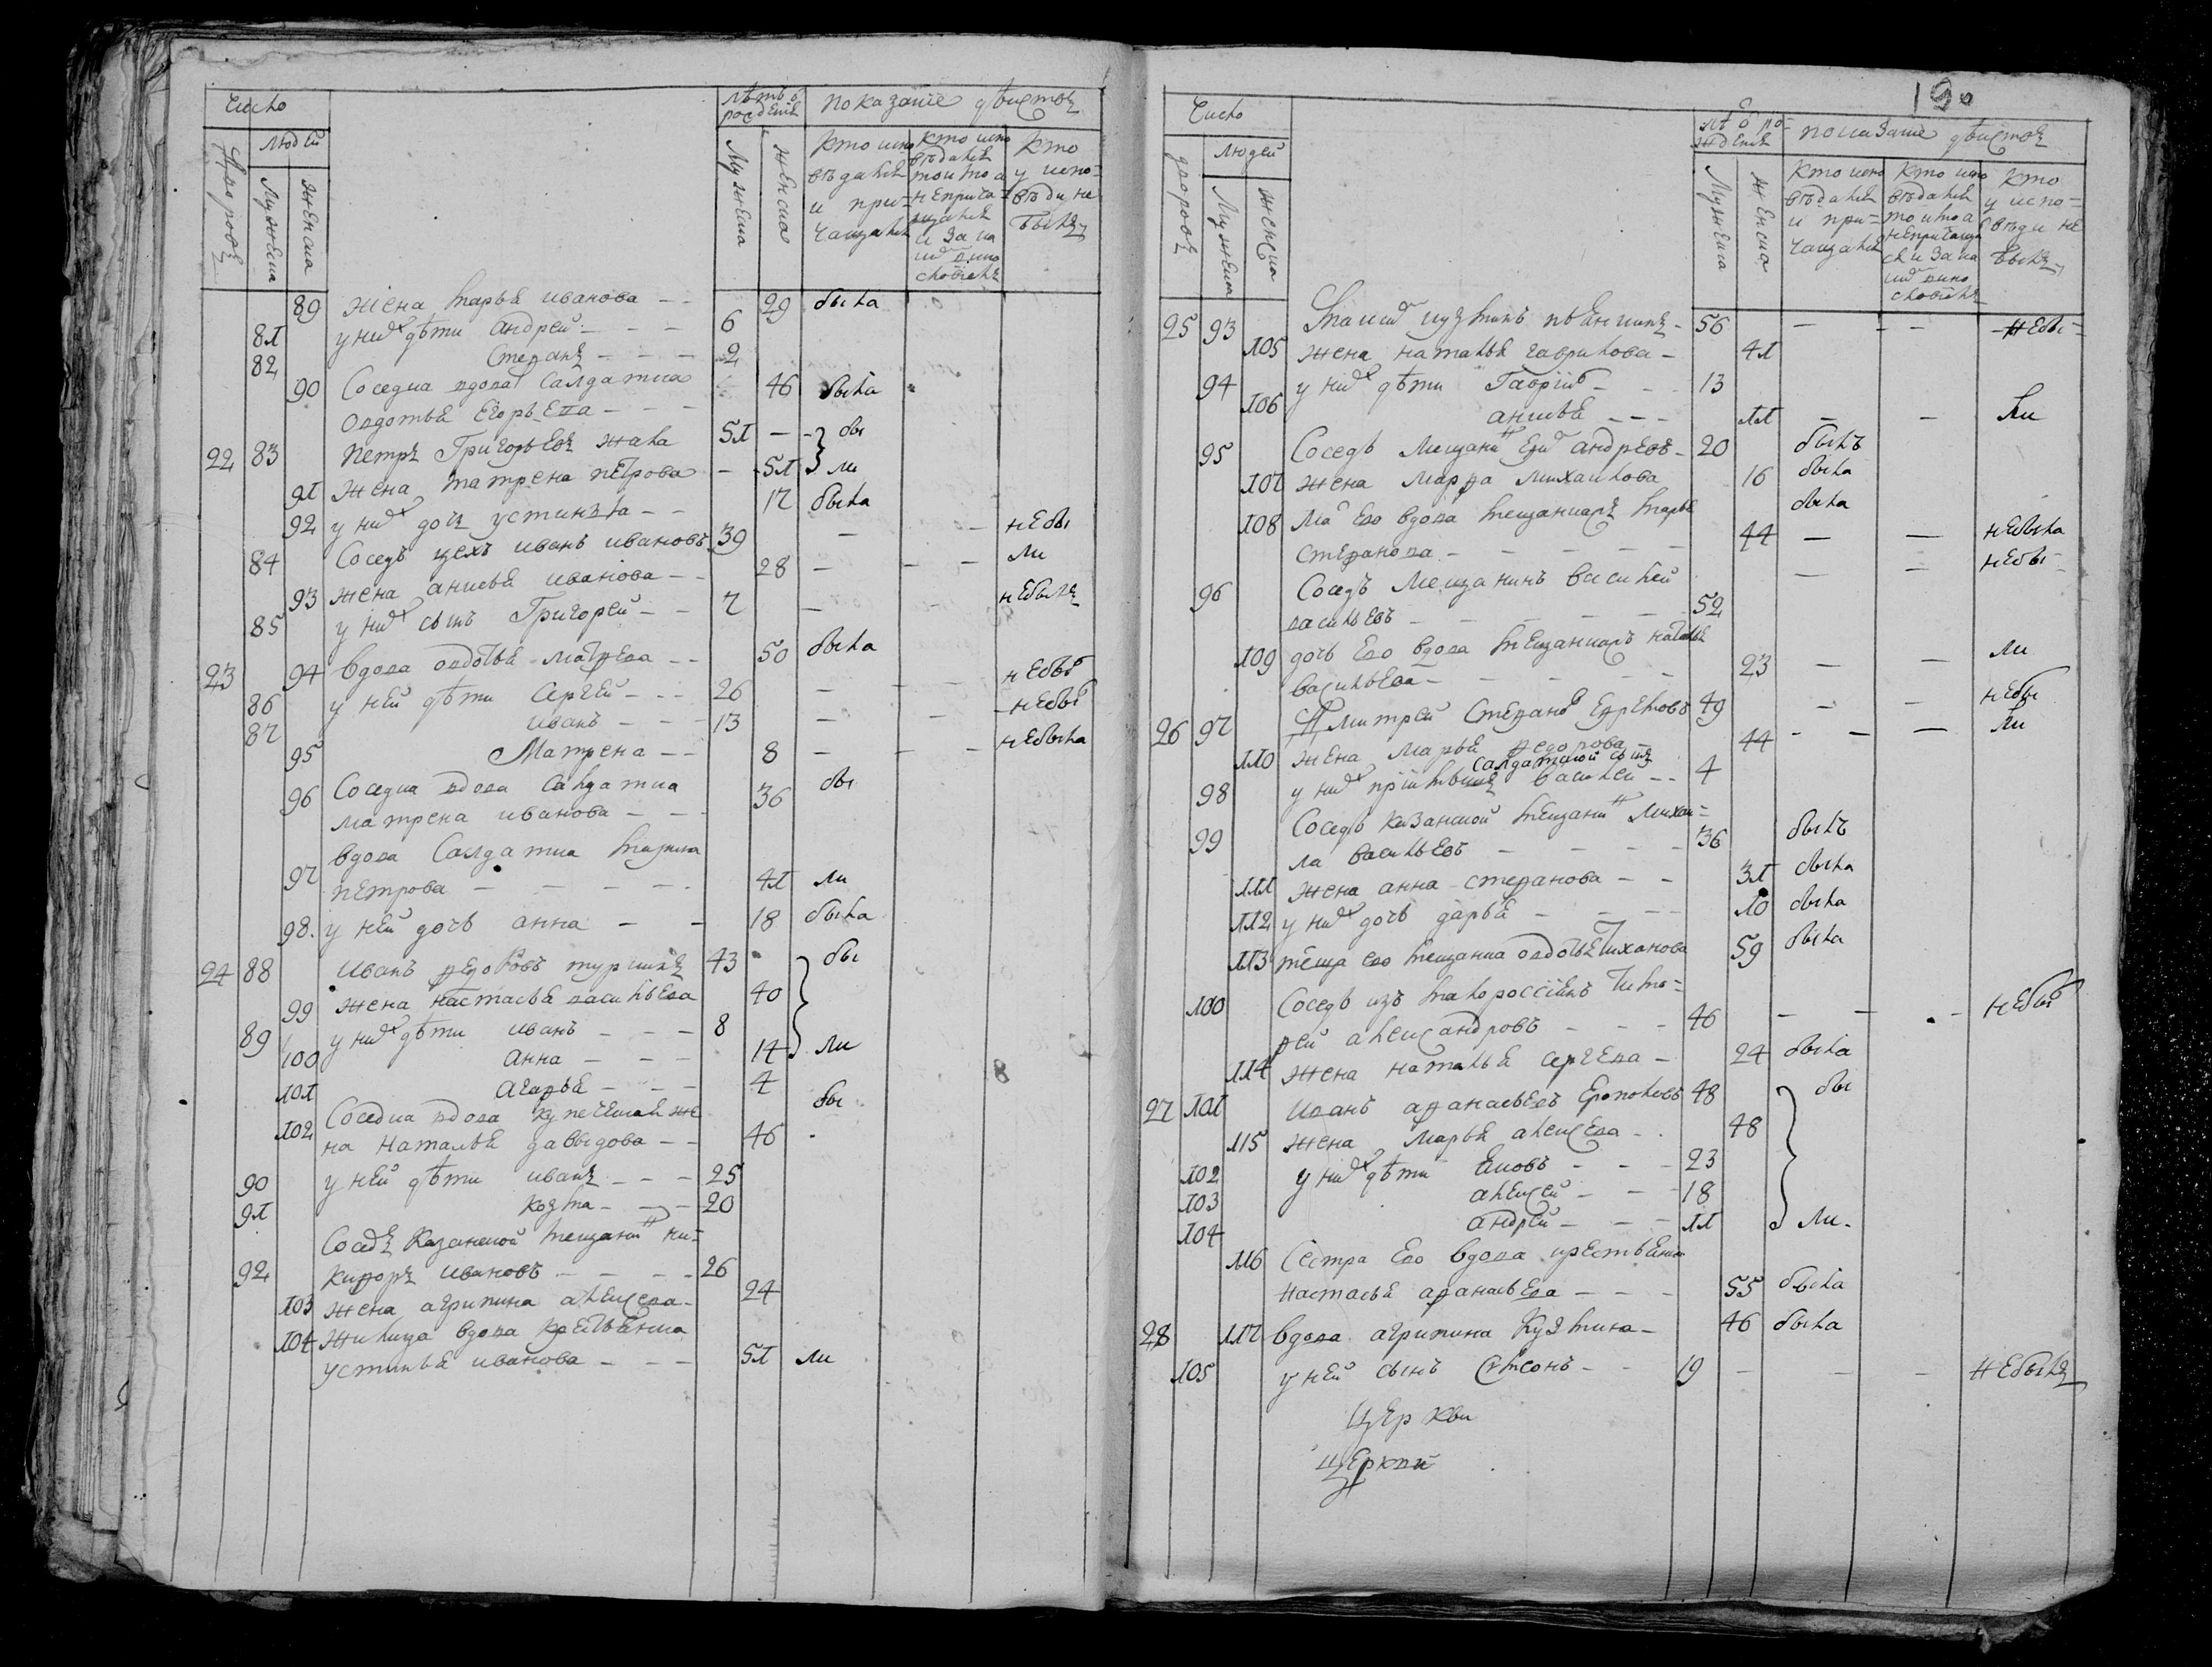 Число
Людей
лѣтъ о рожденіи
показаніе дѣиствъ
дворовъ
Мужеска
женска
Мужеска
женска
кто испо
вѣдался
и при=
чащался
кто испо
вѣдался
токмо а
непріча
щался
и за ка
кимъ вино
словіемъ
кто
у испо=
вѣди не
былъ
89 жена марья иванова - - 29 была
81 у нихъ дѣти андреи - - - 6
82 Степанъ - - - 2
90 Соседка вдова Салдатка 46 была
овдотья Егорьева - - -
22 83 Петръ Григорьевъ 51 - - бы
91 жена матрена петрова - 51 ли
92 у нихъ дочь устинья - - 17 была
84 Соседъ цехъ иванъ ивановъ 39 — — небы
93 жена анисья иванова - - 28 — — — ли
85 у нихъ сынъ Григореи - - 7 — — небылъ
23 94 вдова овдотья - - 50 была
86 у неи дѣти Сергеи - - - 26 — — — небы
87 иванъ - - - 13 — — небы
95 Матрена - - 8 — — — небыла
96 Соседка вдова Салдатка 36 бы
матрена иванова - - -
вдова Салдатка
97 петрова — — — — 41 ли
98 у неи дочь анна — — 18 была
24 88 Иванъ федоровъ 43 бы
99 жена настасья васильева 40
89 у нихъ дѣти иванъ - - - 8
100 анна - - - 14 ли
101 агафья - - - 4
102 Соседка вдова купеческая же 46 бы
на наталья давыдова - -
90 у неи дѣти иванъ - - - 25
91 козма - - - 20
Соседъ казанскои мещанинъ ни=
92 кифоръ ивановъ - - - - 26
103 жена агрипина алексева - 24
104 жилица вдова крестьянка
устинья иванова - - - 51 ли
190
Число
людей
лѣ о ро=
жденіи
показаніе дѣиствъ
дворовъ
Мужеска
женска
Мужеска
женска
кто испо
вѣдался
и при=
чащался
кто испо
вѣдался
токмо а
непричаща
ся и за ка
кимъ вино
словіемъ
кто
у испо=
вѣди не
былъ
25 93 56 — — — небы=
105 жена наталья гаврилова - 41
94 у нихъ дѣти Гаврило - - - 13
106 анисья - - - 11 — — ли
95 Соседъ мещанинъ андреевъ - 20 былъ
107 жена марфа михаилова 16 была
108 мать ево вдова мещанка марья была
степанова - - - - - 44 — — небыла
96 Соседъ мещанинъ василеи — — небы-
васильевъ - - - - 52
109 дочь ево вдова мещанка наталья
васильева - - - - - 23 — — ли
26 97 Дмитреи Степановъ Ефремовъ 49 — — небы
110 жена марья федорова 44 - — — ли
салдатскои сынъ
98 у нихъ приимышъ василеи - - 4
99 Соседъ казанскои мещанинъ михаи=
ла васильевъ - - - - 36 былъ
111 жена анна степанова - - 31 была
112 у нихъ дочь дарья - - - - 10 была
113 теща ево мещанка овдотья тиханова 59 была
100 Соседъ изъ малороссіянъ тимо=
феи александровъ - - - 46 — — - небы
114 жена наталья сергева - 24 была
27 101 Иванъ афанасьевъ 48 бы
115 жена марья алексева - 48
102 у нихъ дѣти яковъ - - - 23
103 алексеи - - - 18
104 андреи - - - 11 ли
116 Сестра ево вдова крестьянка
настасья афанасьева - - - 55 была
28 117 вдова агрипина кузмина - 46 была
105 у неи сынъ семенъ - - 19 — — - небылъ
Церкви
церкви